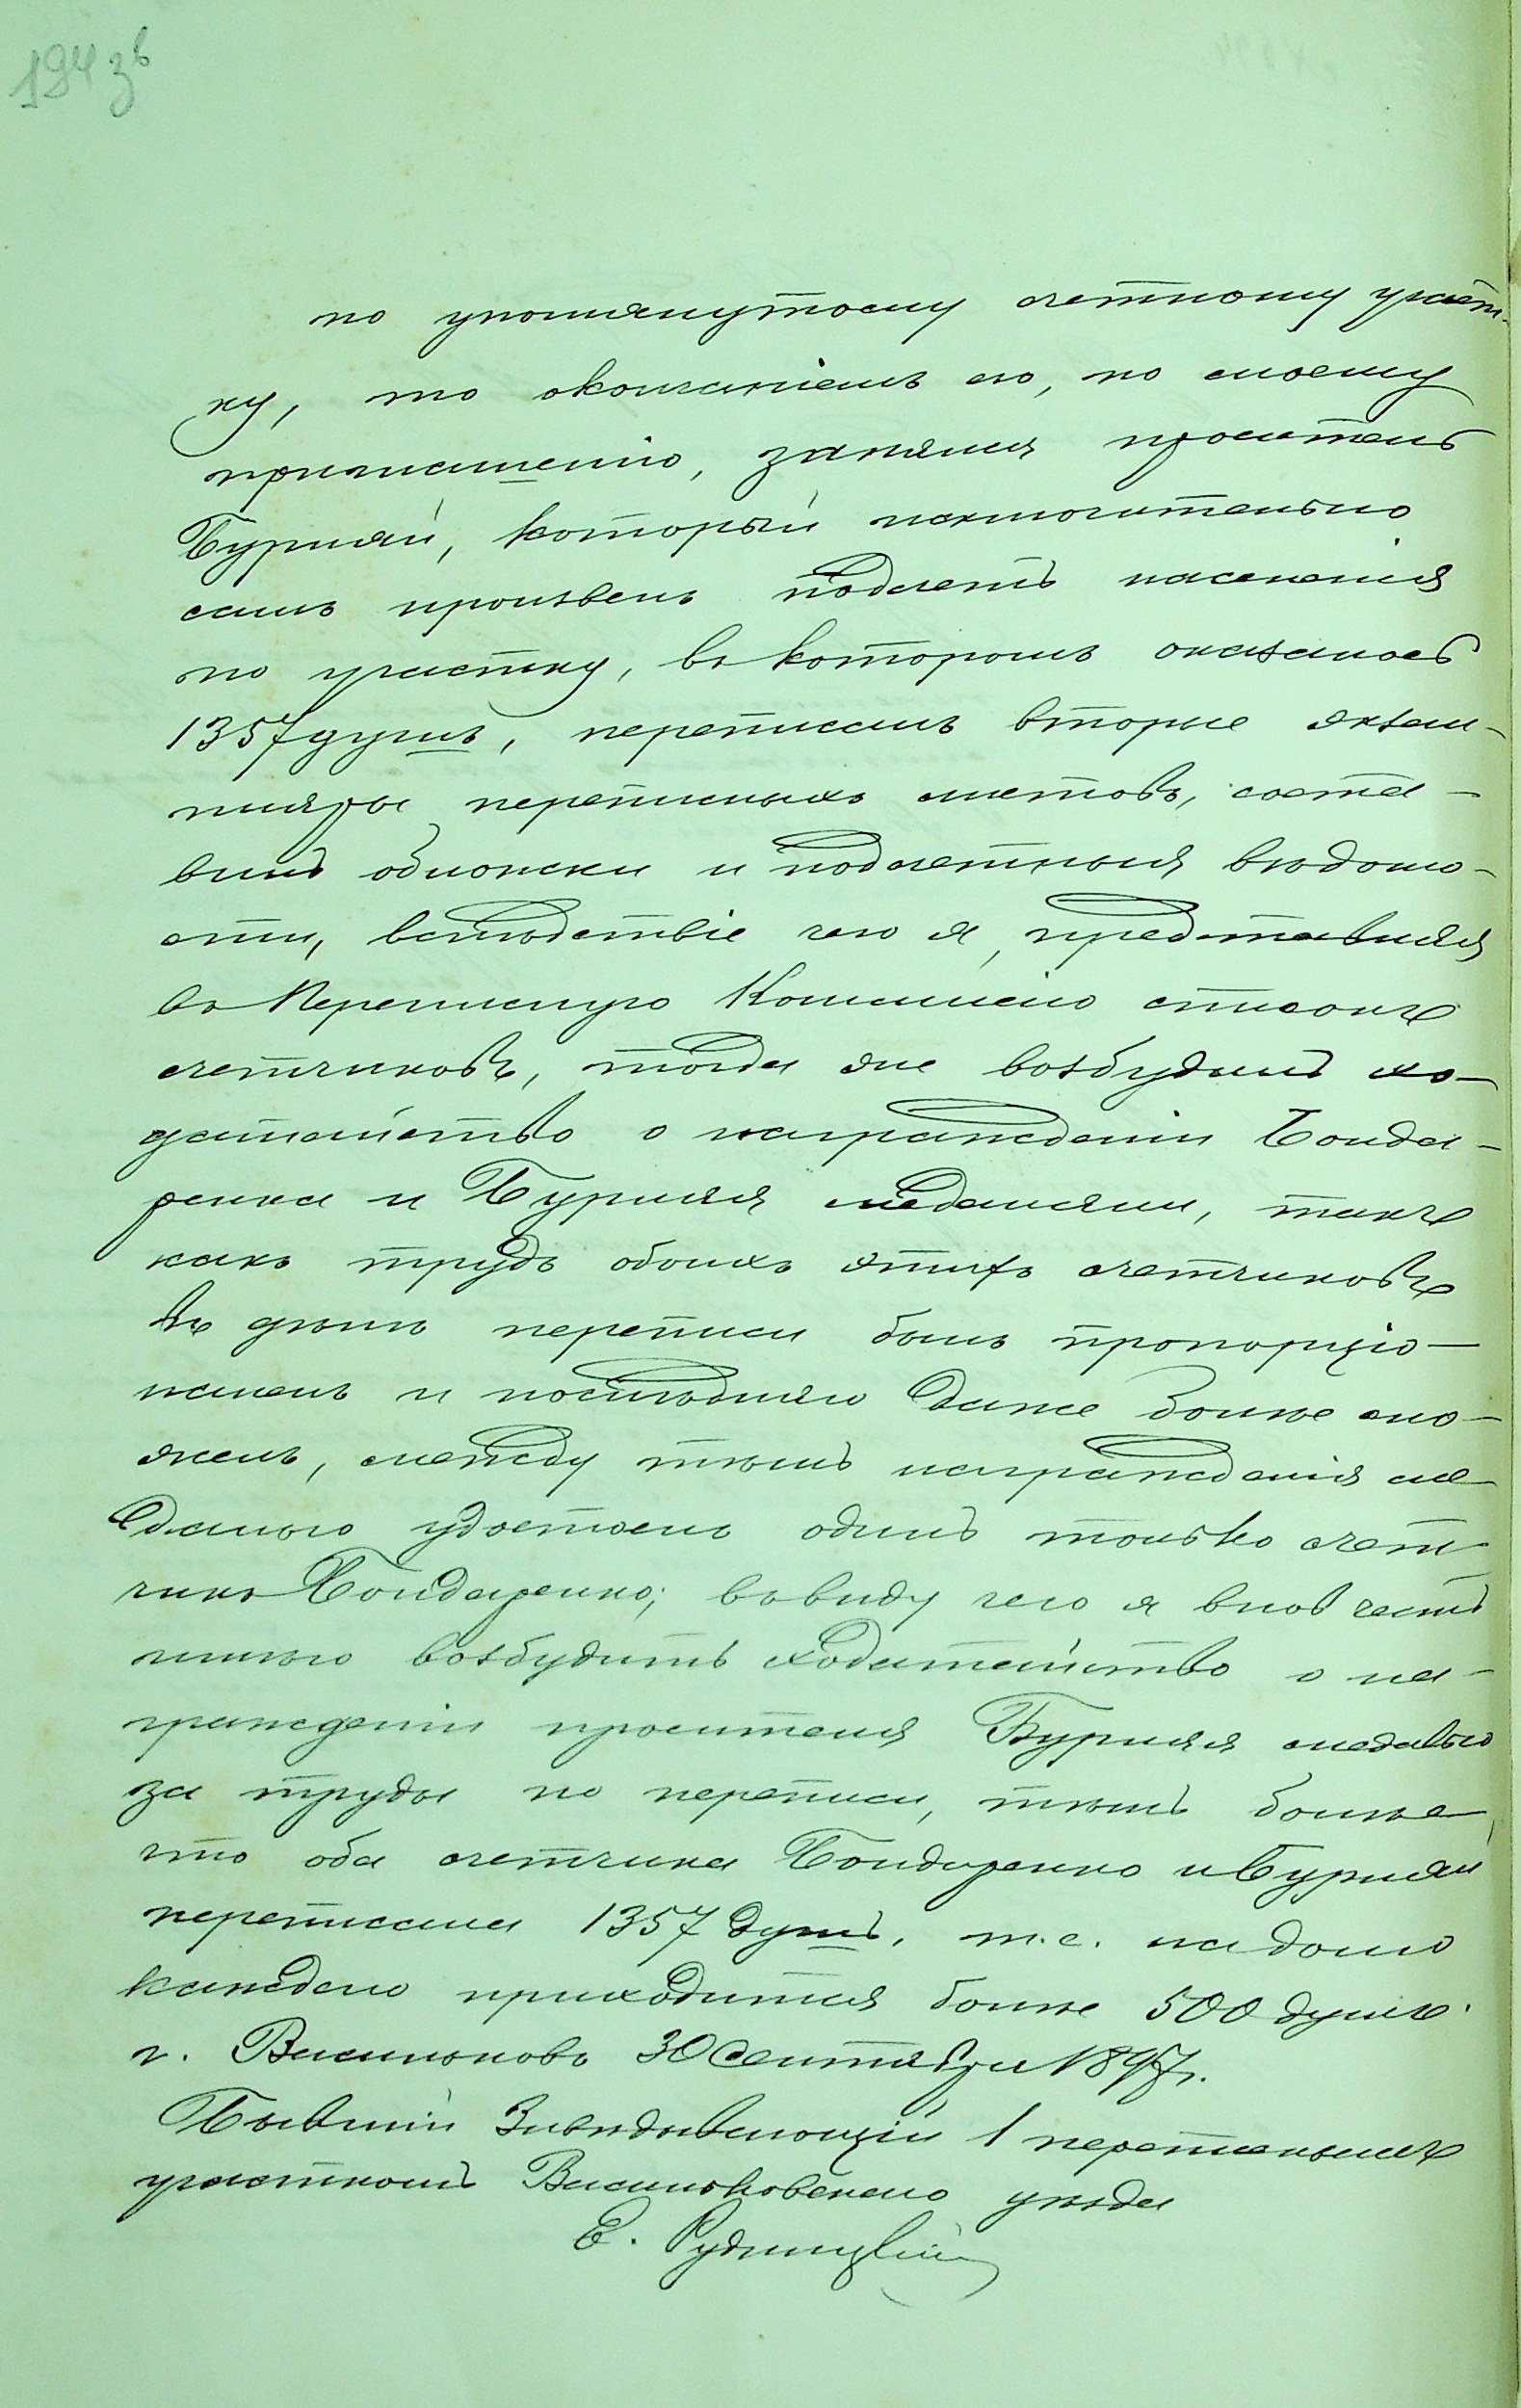 194 зв
по упомянутому счетному участ-
ку, то окончаніемъ его, по моему
приглашенію, занялся проситель
Бурлай, который исключительно
самъ произвелъ подсчетъ населенія
по участку, въ которомъ оказалось
1357 душъ, переписалъ вторые экзем-
пляры переписныхъ листовъ, соста-
вилъ обложки и подсчетныя вѣдомо-
сти, вслѣдствіе чего я, представляя
въ Переписную Коммисію списокъ
счетчиковъ, тогда же возбудилъ хо-
датайство о награжденіи Бонда-
ренка и Бурлая медалями, такъ
какъ трудъ обоихъ этихъ счетчиковъ
въ дѣлѣ переписи былъ пропорціо-
наленъ и послѣдняго даже болѣе сло-
женъ, между тѣмъ награжденія ме-
далью удостоенъ одинъ только счет-
чикъ Бондаренко; въ виду чего я вновь честь
имѣю возбудить ходатайство о на-
гражденіи просителя Бурлая медалью
за труды по переписи, тѣмъ болѣе,
что оба счетчика Бондаренко и Бурлай
переписали 1357 душъ, т.е. на долю
каждаго приходится болѣе 500 душъ.
г. Васильковъ 30 Сентября 1897 г.
Бывшій Завѣдывающій 1 переписнымъ
участкомъ Васильковскаго уѣзда
Е. Рудницкій